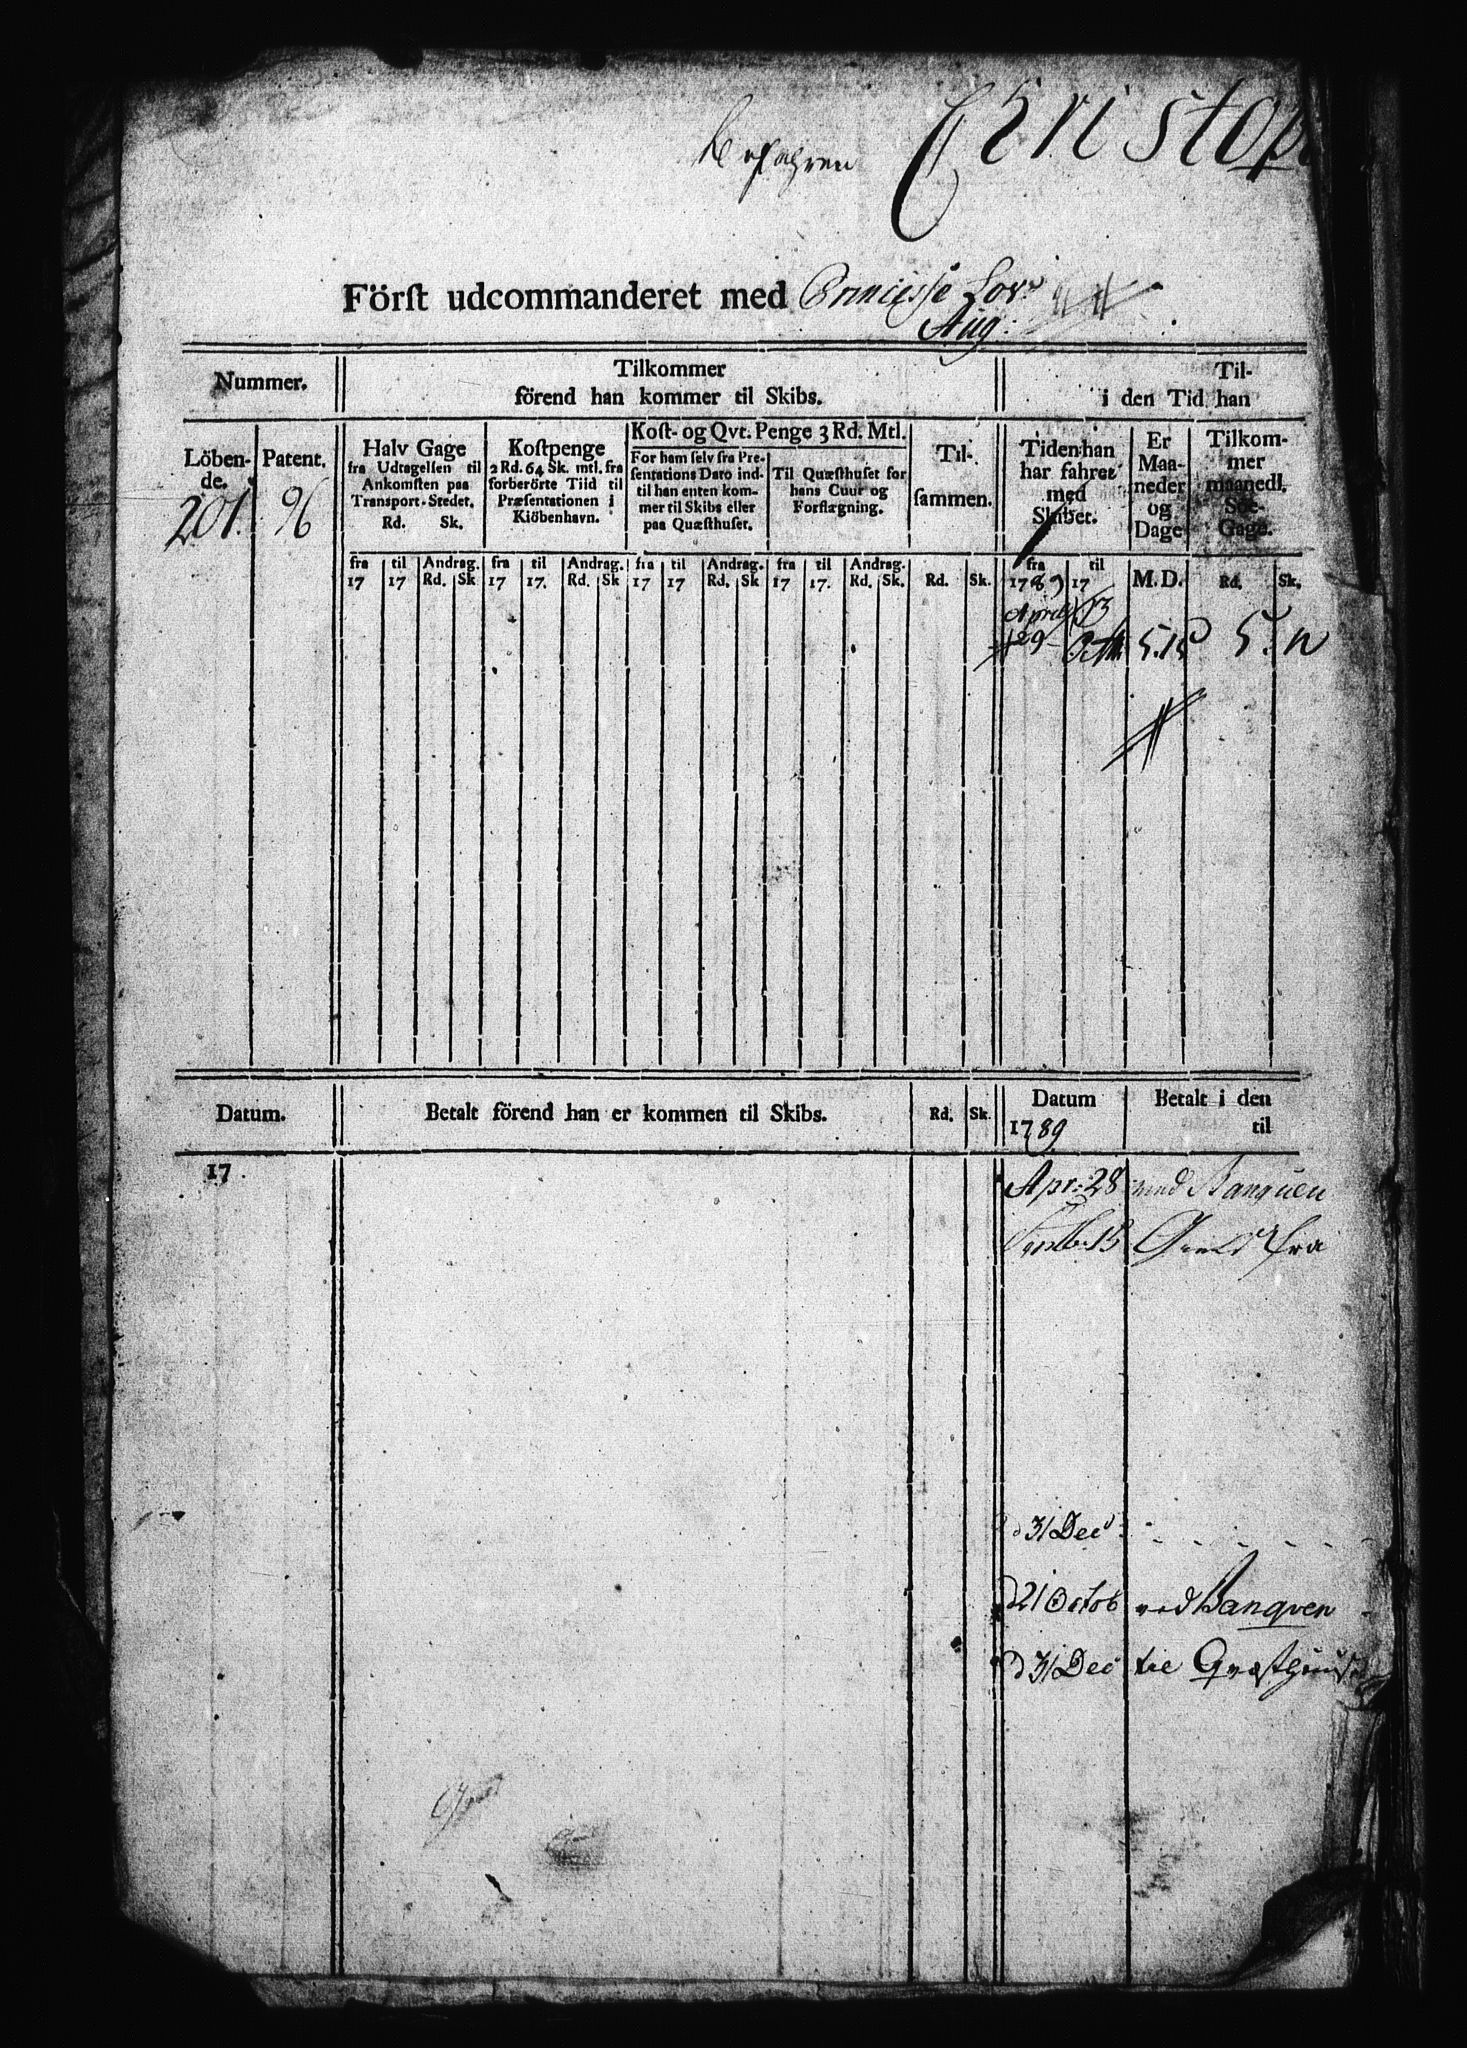 Befahren Christop
Först udcommanderet med Princesse Lov:
Aug:
Nummer.
Tilkommer
förend han kommer til Skibs.
Til-
i den Tid han
Löben-
de.
Patent.
201. 96
Halv Gage
fra Udtagelsen til
Ankomsten paa
Transport-Stedet.
Rd. Sk.
Kostpenge
2 Rd. 64 Sk. mtl. fra
forberörte Tiid til
Præsentationen i
Kiöbenhavn.
Kost- og Qvt. Penge 3 Rd. Mtl.
For ham selv fra Pre-
sentations Dato ind-
til han enten kom-
mer til Skibs eller
paa Quæsthuset.
Til Quæsthuset for
hans Cuur og
Forflægning.
Til-
sammen.
Tiden han
har fahret
med
Skibet.
Er
Maa-
neder
og
Dage
Tilkom-
mer
maanedl.
Söe-
Gage.
fra til Andrag. fra til Andrag. fra til Andrag. fra til Andrag. fra til
17 17 Rd. Sk 17 17. Rd. Sk 17 17 Rd. Sk 17 17. Rd. Sk. Rd. Sk. 1789 17 M.D. Rd. Sk.
April 13
29 Octb. 5.15 5. n
Datum. Betalt förend han er kommen til Skibs. Rd. Sk. Datum Betalt i den
1789 til
17
Apr: 28 ved Banquen
Septb. 15 Gield fra
d 31 Dec:
d 21 Octob ved Banqven
d 31 Dec til Qvæsthuuse